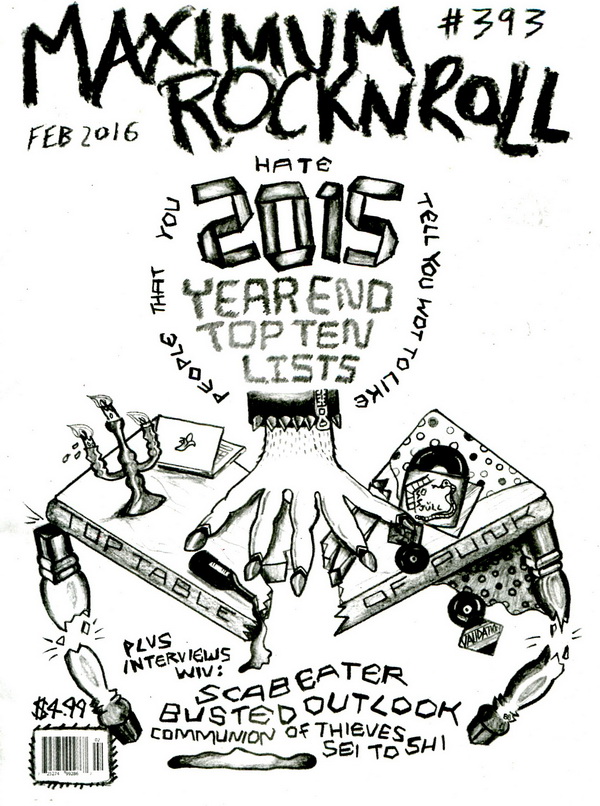 MAXIMUM
ROCKNROLL
#393
FEB 2016
PEOPLE THAT YOU HATE TELL YOU WOT TO LIKE
2015
YEAR END
TOP TEN
LISTS
TOP TABLE OF PUNK
VALIDATION
PLUS
INTERVIEWS
WIV:
SCABEATER
BUSTED OUTLOOK
COMMUNION OF THIEVES
SEI TO SHI
$4.99